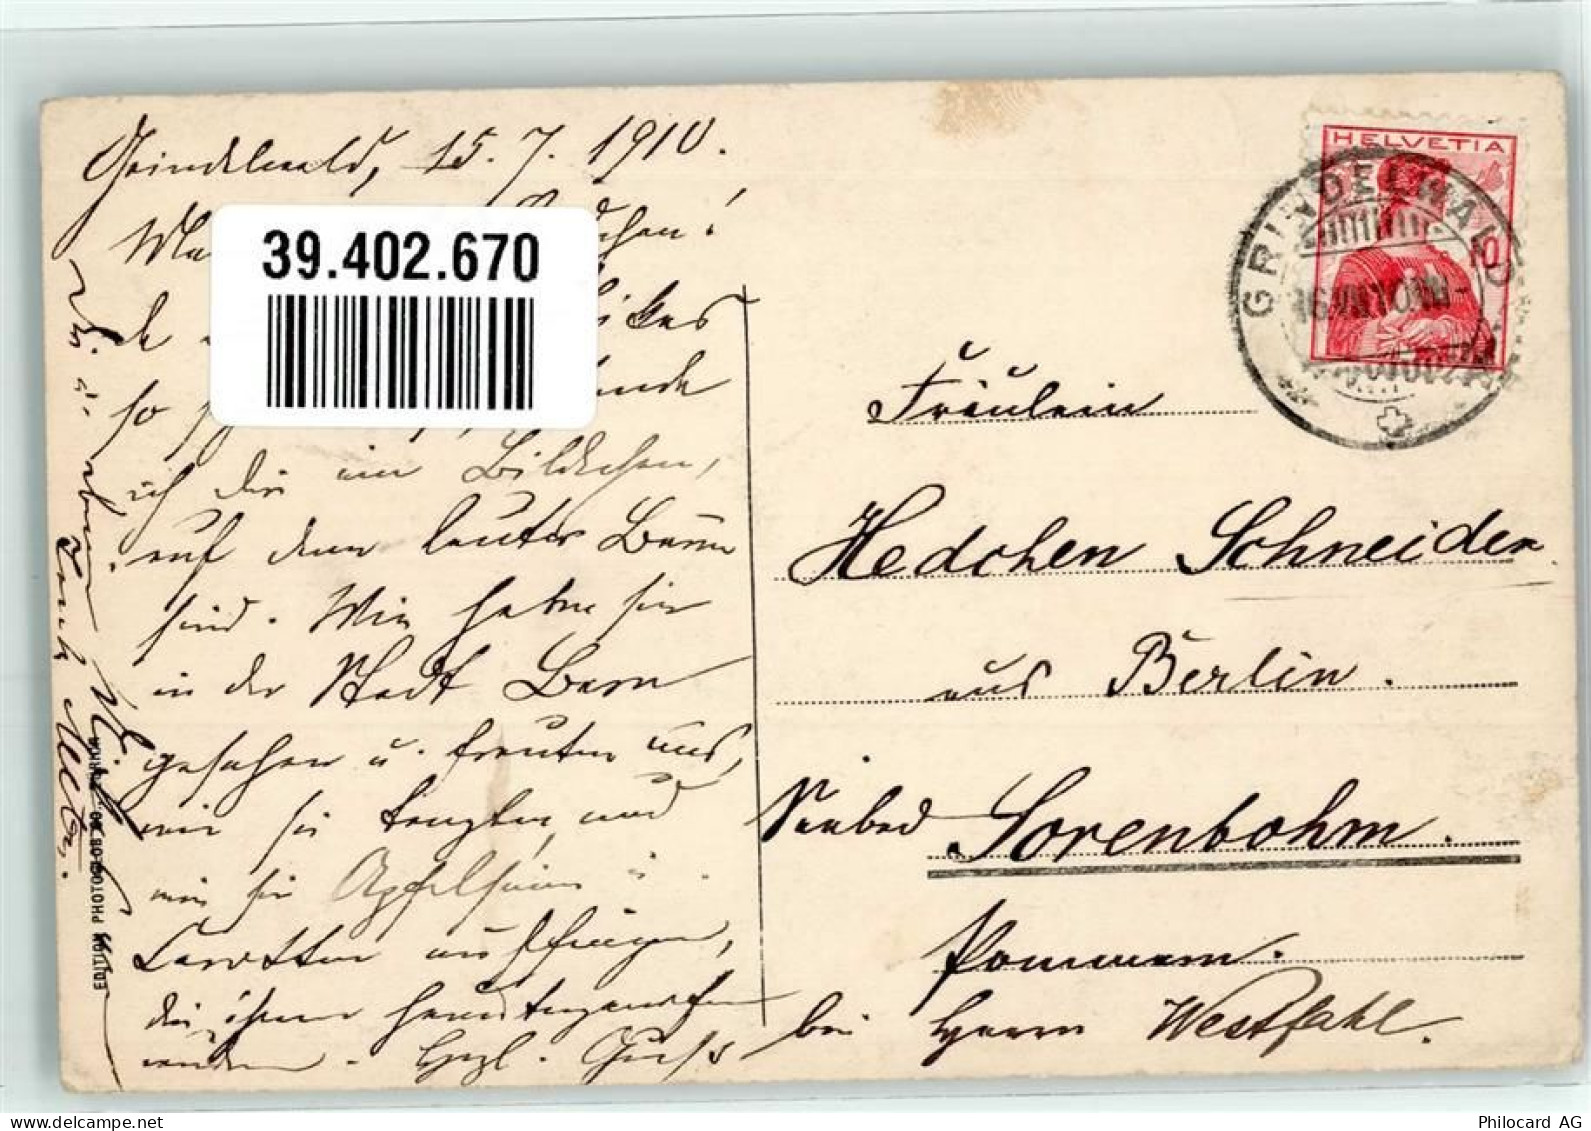 Grindelwald, 15. 7. 1910.
39.402.670
so
ich dir ein Bildchen,
auf dem lauter Bären
sind. Wir haben sie
in der Stadt Bern
gesehen u. freuten uns,
wie sie tanzten, und
wie sie Apfelsinen u.
Carotten auffingen,
die ihnen
wurden. Hrzl. Gruß
Tante Meta.
EDITION PHOTOGLOB CO., ZÜRICH
HELVETIA
10
GRINDELWALD
Fräulein
Hedchen Schneider
aus Berlin.
Seebad Sorenbohm.
Pommern.
bei Herrn Westfahl.
Philocard AG